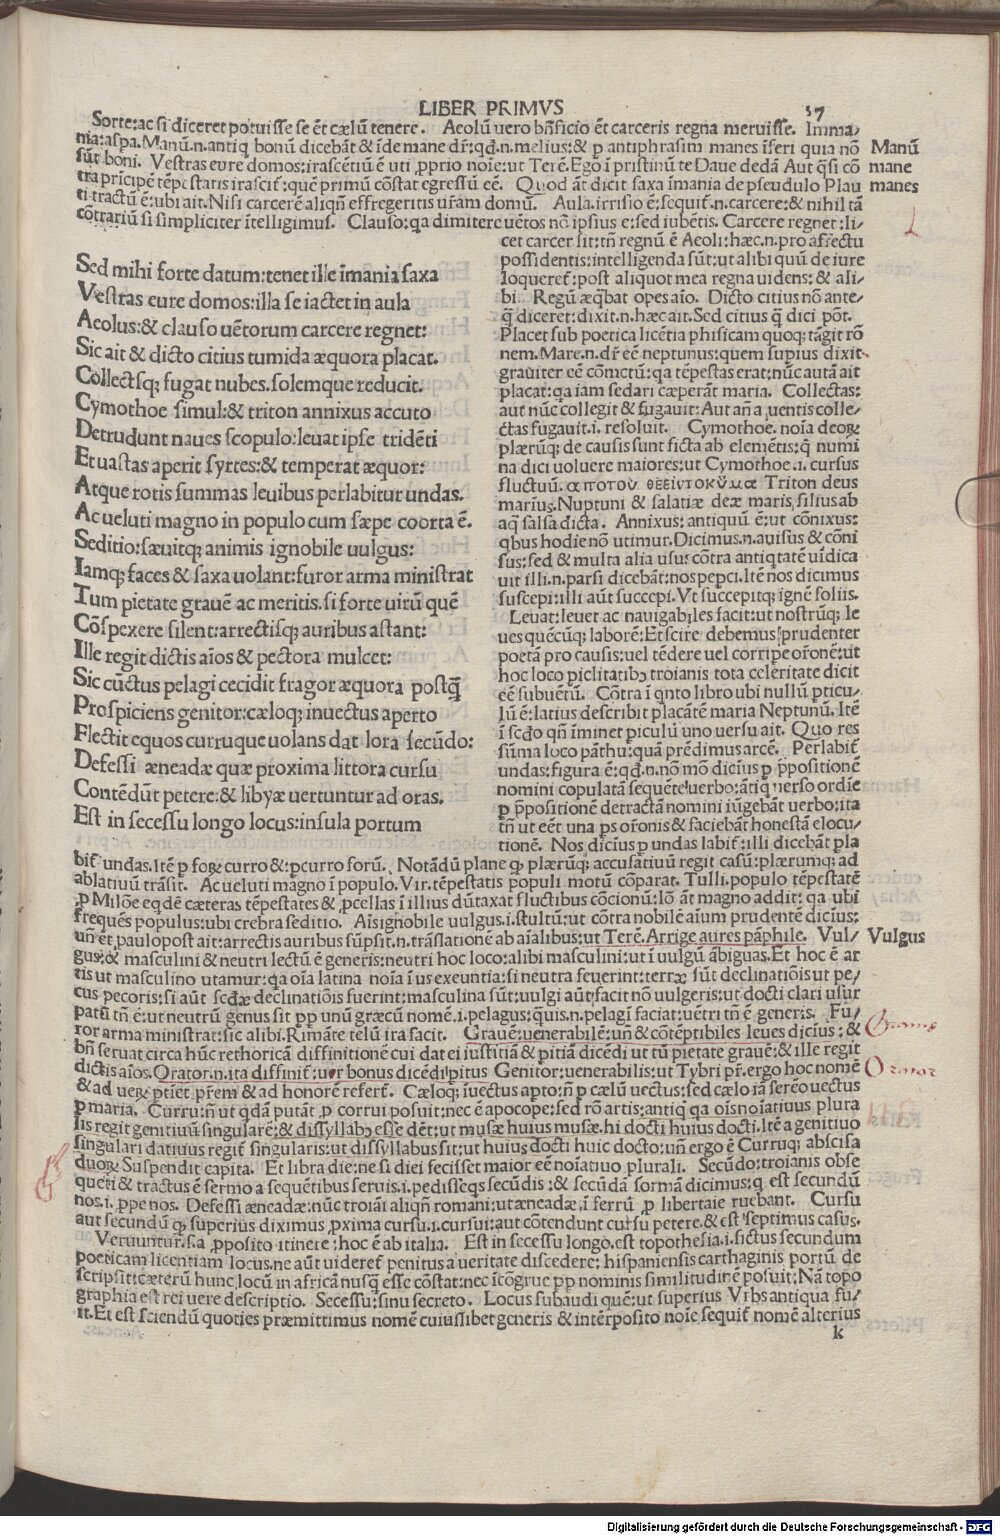 LIBER PRIMVS 57
Sorte:ac si diceret potuisse se ēt cælū tenere. Aeolū uero bn̄ficio ēt carceris regna meruisse. Imma/
nia:aspa.Manū.n.antiq bonū dicebāt & īde mane dr̄:qd̄.n.melius:& p antiphrasim manes īferi quia nō
sūt boni. Vestras eure domos:irascētiū ē uti ,pprio noīe:ut Terē.Ego ī pristinū te Daue dedā Aut q̄si cō
tra prīcipē tēpestatis irascit̄:quē primū cōstat egressū eē. Quod āt dicit saxa īmania de pseudulo Plau
ti tractū ē:ubi ait.Nisi carcerē aliqn̄ effregeritis ur̄am domū. Aula.irrisio ē:sequit̄.n.carcere:& nihil tā
cōtrariū si simpliciter ītelligimus. Clauso:qa dimitere uētos nō ipsius e:sed iubētis. Carcere regnet:li/
Manū
mane
manes
Sed mihi forte datum:tenet ille īmania saxa
Vestras eure domos:illa se iactet in aula
Aeolus:& clauso uētorum carcere regnet:
Sic ait & dicto citius tumida æquora placat.
Collectasq; fugat nubes.solemque reducit.
Cymothoe simul:& triton annixus accuto
Detrudunt naues scopulo:leuat ipse tridēti
Et uastas aperit syrtes:& temperat æquor:
Atque rotis summas leuibus perlabitur undas.
Ac ueluti magno in populo cum sæpe coorta ē.
Seditio:sæuitq; animis ignobile uulgus:
Iamq; faces & saxa uolant:furor arma ministrat
Tum pietate grauē ac meritis.si forte uirū quē
Cōspexere silent:arrectisq; auribus astant:
Ille regit dictis aīos & pectora mulcet:
Sic cūctus pelagi cecidit fragor æquora postq̄
Prospiciens genitor:cæloq; inuectus aperto
Flectit equos curruque uolans dat lora secūdo:
Defessi æneadæ quæ proxima littora cursu
Contēdūt petere:& libyæ uertuntur ad oras.
Est in secessu longo locus:insula portum
cet carcer sit:tn̄ regnū ē Aeoli:hæc.n.pro affectu
possidentis:intelligenda sūt:ut alibi quū de iure
loqueret̄:post aliquot mea regna uidens:& ali/
bi. Regū æq̄bat opes aīo. Dicto citius nō ante/
q̄ diceret:dixit.n.hæc ait.Sed citius q̄ dici pōt.
Placet sub poetica licētia phisicam quoq; tāgit rō
nem.Mare.n.dr̄ eē neptunus:quem supius dixit
grauiter eē cōmotū:qa tēpestas erat:nūc autā ait
placat:qa iam sedari cæperāt maria. Collectas:
aut nūc collegit & fugauit:Aut an̄ a uentis colle/
ctas fugauit.i. resoluit. Cymothoe. noīa deoꝝ
plærūq; de causis sunt ficta ab elemētis:q̄ numi
na dici uoluere maiores:ut Cymothoe.i. cursus
fluctuū. απο του θεειν το κυμα Triton deus
marīus.Nuptuni & salatiæ deæ maris filius ab
aq̄ salsa dicta. Annixus:antiquū ē:ut cōnixus:
qbus hodie nō utimur.Dicimus.n.auisus & cōni
sus:sed & multa alia usu: cōtra antiqtatē uīdica
uit illi.n.parsi dicebāt:nos peperci.Itē nos dicimus
suscepi:illi aūt succepi.Vt succepitq; ignē foliis.
Leuat:leuet ac nauigabiles facit:ut nostrūq; le
ues quēcūq; laborē:Et scire debemus:prudenter
poetā pro causis:uel tēdere uel corripe or̄onē:ut
hoc loco piclitatibꝯ troianis tota celeritate dicit
eē subuētū. Cōtra ī qnto libro ubi nullū pticu/
lū ē:latius describit placātē maria Neptunū. Itē
ī scd̄o qn̄ īminet piculū uno uersu ait. Quo res
sūma loco pāthu:quā prēdimus arcē. Perlabit̄
undas:figura ē:qd̄.n.nō mō diciūs p p̄positionē
nomini copulatā sequēte uerbo:ātiq uerso ordīe
p p̄positionē detractā nomini iūgebāt uerbo:ita
tn̄ ut eēt una ps or̄onis & faciebāt honestā elocu/
tionē. Nos diciūs p undas labit̄:illi dicebāt pla
bit̄ undas.Itē p foꝝ curro &:pcurro forū. Notādū plane q plærūq; accusatiuū regit casū:plærumq; ad
ablatiuū trāsit. Ac ueluti magno ī populo.Vir.tēpestatis populi motū cōparat. Tulli.populo tēpestatē
,p Milōe eqdē cæteras tēpestates & ,pcellas ī illius dūtaxat fluctibus cōcionū:Iō āt magno addit: qa ubi
freq̄ues populus:ubi crebra seditio. Aīs ignobile uulgus.i.stultū:ut cōtra nobilē aīum prudentē diciūs:
un̄ et paulopost ait:arrectis auribus sūpsit.n.trāslationē ab aīalibus:ut Terē.Arrige aures pāphile. Vul/
Vulgus
gus:& masculini & neutri lectū ē generis:neutri hoc loco:alibi masculini:ut ī uulgū ābiguas.Et hoc ē ar
tis ut masculino utamur:qa oīa latina noīa ī us exeuntia:si neutra fuerint:terræ sūt declinatiōis ut pe/
cus pecoris:si aūt scd̄æ declinatiōis fuerint:masculina sūt:uulgi aūt facit nō uulgeris:ut docti clari usur
patū tn̄ ē:ut neutrū genus sit pp unū græcū nomē.i.pelagus:quis.n.pelagī faciat:uētri tn̄ ē generis. Fu/
ror arma ministrat:sic alibi.Rimāte telū ira facit. Grauē:uenerabilē:un̄ & cōtēptibiles leues diciūs:&
bn̄ seruat circa hūc rethoricā diffinitionē cui dat ei iustitiā & pitiā dicēdi ut tū pietate grauē:& ille regit
dictis aīos.Orator.n.ita diffinit̄:uir bonus dicēdi pitus Genitor:uenerabilis:ut Tybri pr̄.ergo hoc nomē
Orator
& ad ueꝝ ptīet pr̄em & ad honorē refert̄. Cæloq; īuectus apto:n̄ p cælū uectus:sed cælo iā serēo uectus
p maria. Curru:n̄ ut qdā putāt p corrui posuit:nec ē apocope:sed rō artis:antiq qa oīs noīatiuus plura
lis regit genitiuū singularē:& dissyllabꝯ esse dēt:ut musæ huius musæ.hi docti huius docti.Itē a genitiuo
singulari datiuus regit̄ singularis:ut dissyllabus sit:ut huius docti huic docto:un̄ ergo ē Curruq; abscisa
duoꝝ Suspendit capita. Et libra die:ne si diei fecisset maior eē noīatiuo plurali. Secūdo:troianis obse
queti & tractus ē sermo a sequētibus seruis.i.pedisseqs secūdis:& secūdā formā dicimus:q est secundū
nos.i. ,ppe nos. Defessi æneadæ:nūc troiāi aliqn̄ romani:ut æneadæ ī ferrū p libertate ruebant. Cursu
aut secundū q; superius diximus ,pxima cursu.i.cursui:aut cōtendunt cursu petere.& est septimus casus.
Veruuntur.s.a ,pposito itinere:hoc ē ab italia. Est in secessu longo.est topothesia.i.fictus secundum
poeticam licentiam locus.ne aūt uideret̄ penitus a ueritate discedere: hispaniensis carthaginis portū de
scripsit:cæterū hunc locū in africā nusq̄ esse cōstat:nec īcōgrue pp nominis similitudinē posuit:Nā topo
graphia est rei uere descriptio. Secessu:sinu secreto. Locus subaudi quē:ut superius Vrbs antiqua fu/
it.Et est sciendū quoties præmittimus nomē cuiuslibet generis & interposito noīe sequit̄ nomē alterius
k
Digitalisierung gefördert durch die Deutsche Forschungsgemeinschaft - DFG